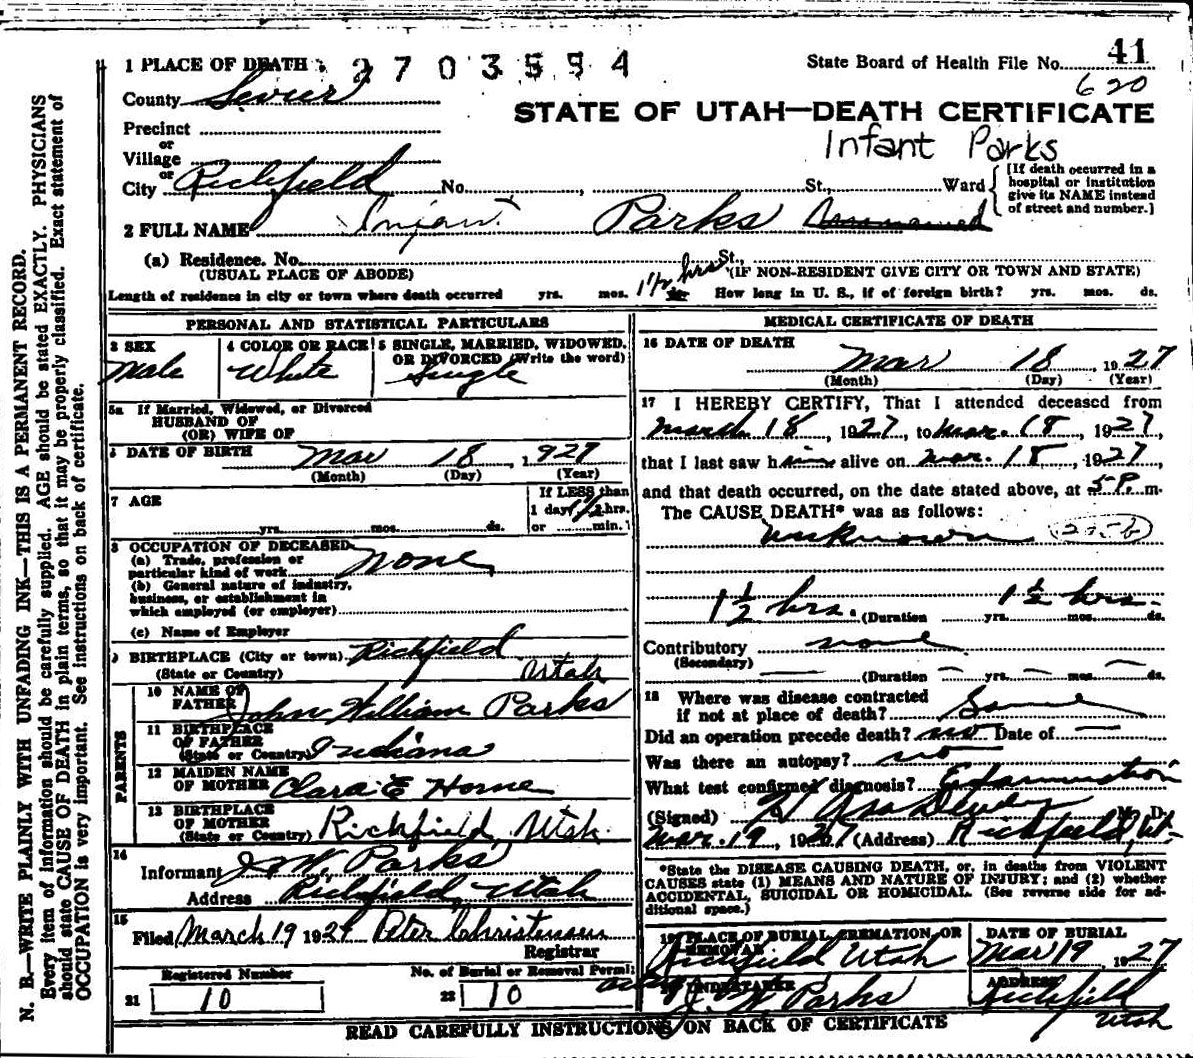 N. B.—WRITE PLAINLY WITH UNFADING INK—THIS IS A PERMANENT RECORD.
Every item of information should be carefully supplied. AGE should be stated EXACTLY. PHYSICIANS
should state CAUSE OF DEATH in plain terms, so that it may be properly classified. Exact statement of
OCCUPATION is very important. See instructions on back of certificate.
1 PLACE OF DEATH 2703554
State Board of Health File No. 41
620
County Sevier
STATE OF UTAH—DEATH CERTIFICATE
Precinct
or
Infant Parks
Village
or
City Richfield No. , St., Ward
[If death occurred in a
hospital or institution
give its NAME instead
of street and number.]
2 FULL NAME Infant Parks Unnamed
(a) Residence. No. St.,
(USUAL PLACE OF ABODE) (IF NON-RESIDENT GIVE CITY OR TOWN AND STATE)
Length of residence in city or town where death occurred yrs. mos. 1 1/2 hrs How long in U. S., if of foreign birth? yrs. mos. ds.
PERSONAL AND STATISTICAL PARTICULARS
3 SEX 4 COLOR OR RACE 5 SINGLE, MARRIED, WIDOWED,
OR DIVORCED (Write the word)
Male White Single
5a If Married, Widowed, or Divorced
HUSBAND OF
(OR) WIFE OF
6 DATE OF BIRTH Mar 18, 1927
(Month) (Day) (Year)
7 AGE If LESS than
1 day 1 1/2 hrs.
yrs. mos. ds. or min.
8 OCCUPATION OF DECEASED
(a) Trade, profession or
particular kind of work None
(b) General nature of industry,
business, or establishment in
which employed (or employer)
(c) Name of Employer
9 BIRTHPLACE (City or town) Richfield
(State or Country) Utah
PARENTS
10 NAME OF
FATHER John William Parks
11 BIRTHPLACE
OF FATHER
(State or Country) Indiana
12 MAIDEN NAME
OF MOTHER Clara E Horne
13 BIRTHPLACE
OF MOTHER
(State or Country) Richfield, Utah.
14
Informant J. W. Parks
Address Richfield, Utah
15
Filed March 19 1927 Peter Christensen
Registrar
Registered Number No. of Burial or Removal Permit
21 10 22 10
MEDICAL CERTIFICATE OF DEATH
16 DATE OF DEATH
Mar 18, 1927
(Month) (Day) (Year)
17 I HEREBY CERTIFY, That I attended deceased from
March 18, 1927, to Mar. 18, 1927,
that I last saw him alive on Mar. 18, 1927,
and that death occurred, on the date stated above, at 5 P. m.
The CAUSE DEATH* was as follows:
Unknown
1 1/2 hrs. (Duration yrs. mos. ds. 1 1/2 hrs.
Contributory none
(Secondary) (Duration yrs. mos. ds.
18 Where was disease contracted
if not at place of death? Same
Did an operation precede death? no Date of —
Was there an autopay? no
What test confirmed diagnosis? Examination
(Signed) M. D.
Mar. 19, 1927 (Address) Richfield, Ut.
*State the DISEASE CAUSING DEATH, or, in deaths from VIOLENT
CAUSES state (1) MEANS AND NATURE OF INJURY; and (2) whether
ACCIDENTAL, SUICIDAL OR HOMICIDAL. (See reverse side for ad-
ditional space.)
19 PLACE OF BURIAL, CREMATION, OR
REMOVAL
Richfield Utah
DATE OF BURIAL
Mar 19, 1927
20 UNDERTAKER
J. W. Parks
ADDRESS
Richfield
Utah
READ CAREFULLY INSTRUCTIONS ON BACK OF CERTIFICATE